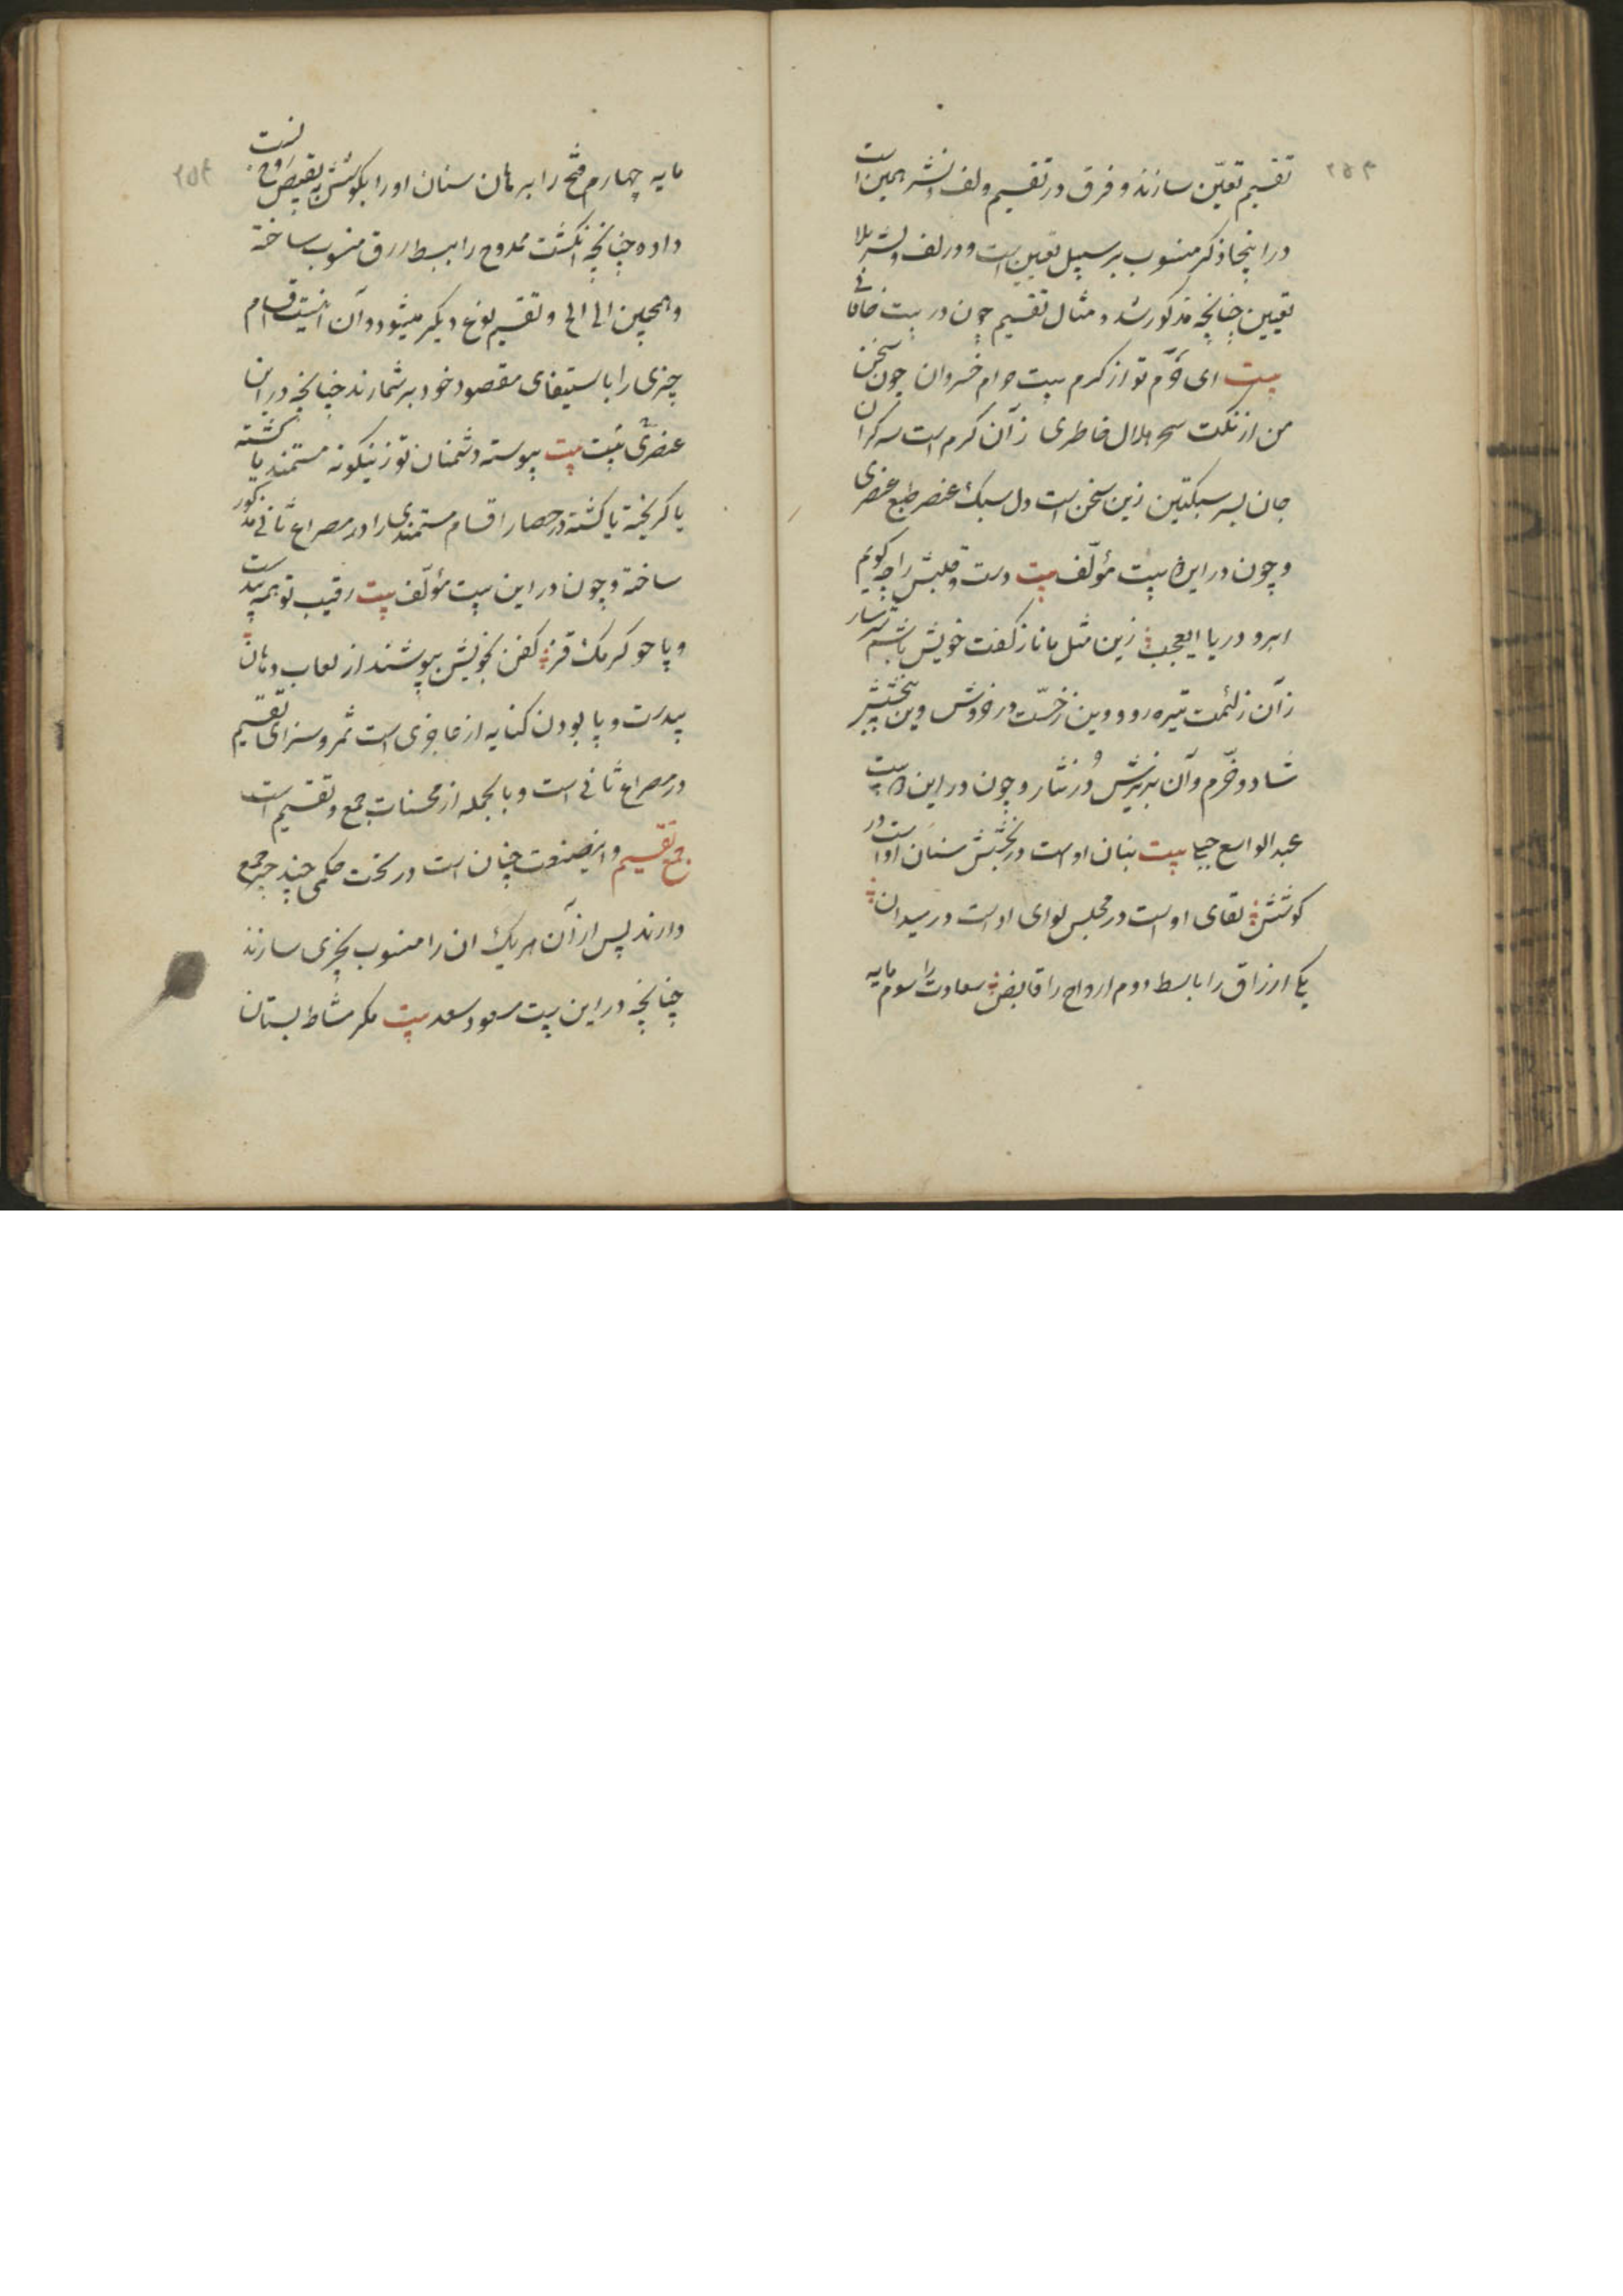 ۲۵۳
تقسیم تعیّن سازند و فرق در تقسیم و لف و نشر همین است
در اینجا ذکر منسوب بر سبیل تعیین است و در لف و نشر بلا
تعیین چنانچه مذکور شد و مثال تقسیم چون در بیت خاقانی
بیت ای تو از کرم بیت حرام خسروان چون سخن
من از نکت سحر هلال خاطری زآن کرم است سر کران
جان پسر سبکتکین زین سخن است دل سبک عنصر طبع عنصری
و چون در این بیت مؤلّف بیت دست و قلبش را چه گویم
ابر و دریا ای عجب زین مثل مانا ز گفت خویش باشم شرمسار
زآن زلئمت تیره رو و وین ز خسّت در خروش وین ببخشش
شاد و خرّم و آن بریزش دُر نثار و چون در این بیت
عبدالواسع جبلی بیت بنان اوست در بخشش سنان اوست در
کوشش لقای اوست در مجلس لوای اوست در میدان
یکی ارزاق را باسط دوم ارواح را قابض سعادت را سوم مایه
۲۵۴
مایه چهارم فتح را برهان سنان او را بکوشش بقبض روح نسبت
داده چنانچه انگشت ممدوح را ببسط رزق منسوب ساخته
و همچنین الی الی و تقسیم نوع دیگر میشود و آن اینست اقسام
چیزی را باستیفای مقصود خود برشمارند چنانچه در این
عنصری بیت بیت پیوسته دشمنان تو زینگونه مستمند یا کشته
یا گریخته یا کشته در حصار اقسام مستمندی را در مصراع ثانی مذکور
ساخته و چون در این بیت مؤلّف بیت رقیب تو همه بیدست
و پا چو کرمک قز کفن بخویش بپوشند از لعاب دهان
بیدست و پا بودن کنایه از عاجزی است ثمر و سزای تقسیم
در مصراع ثانی است و بالجمله از محسنات جمع و تقسیم است
جمع تقسیم و این صنعت چنان است در تحت حکمی چند چیز جمع
دارند پس از آن هر یک ان را منسوب بچیزی سازند
چنانچه در این بیت مسعود سعد بیت مگر مشاط بستان